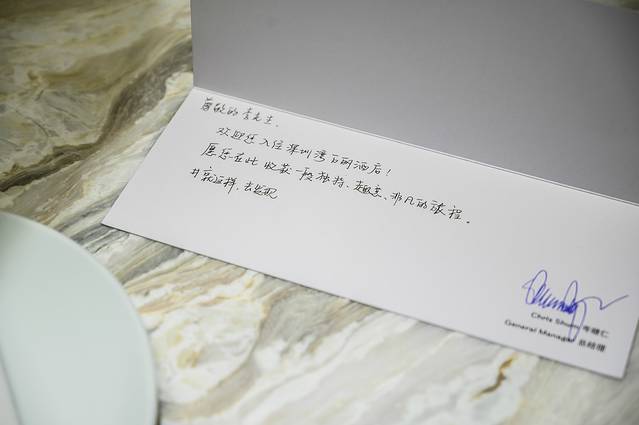 尊敬的李先生,
欢迎您入住深圳湾万丽酒店!
愿您在此收获一段独特、趣意、非凡的旅程。
#就这样,去发现
Chris Shum 岑健仁
General Manager 总经理